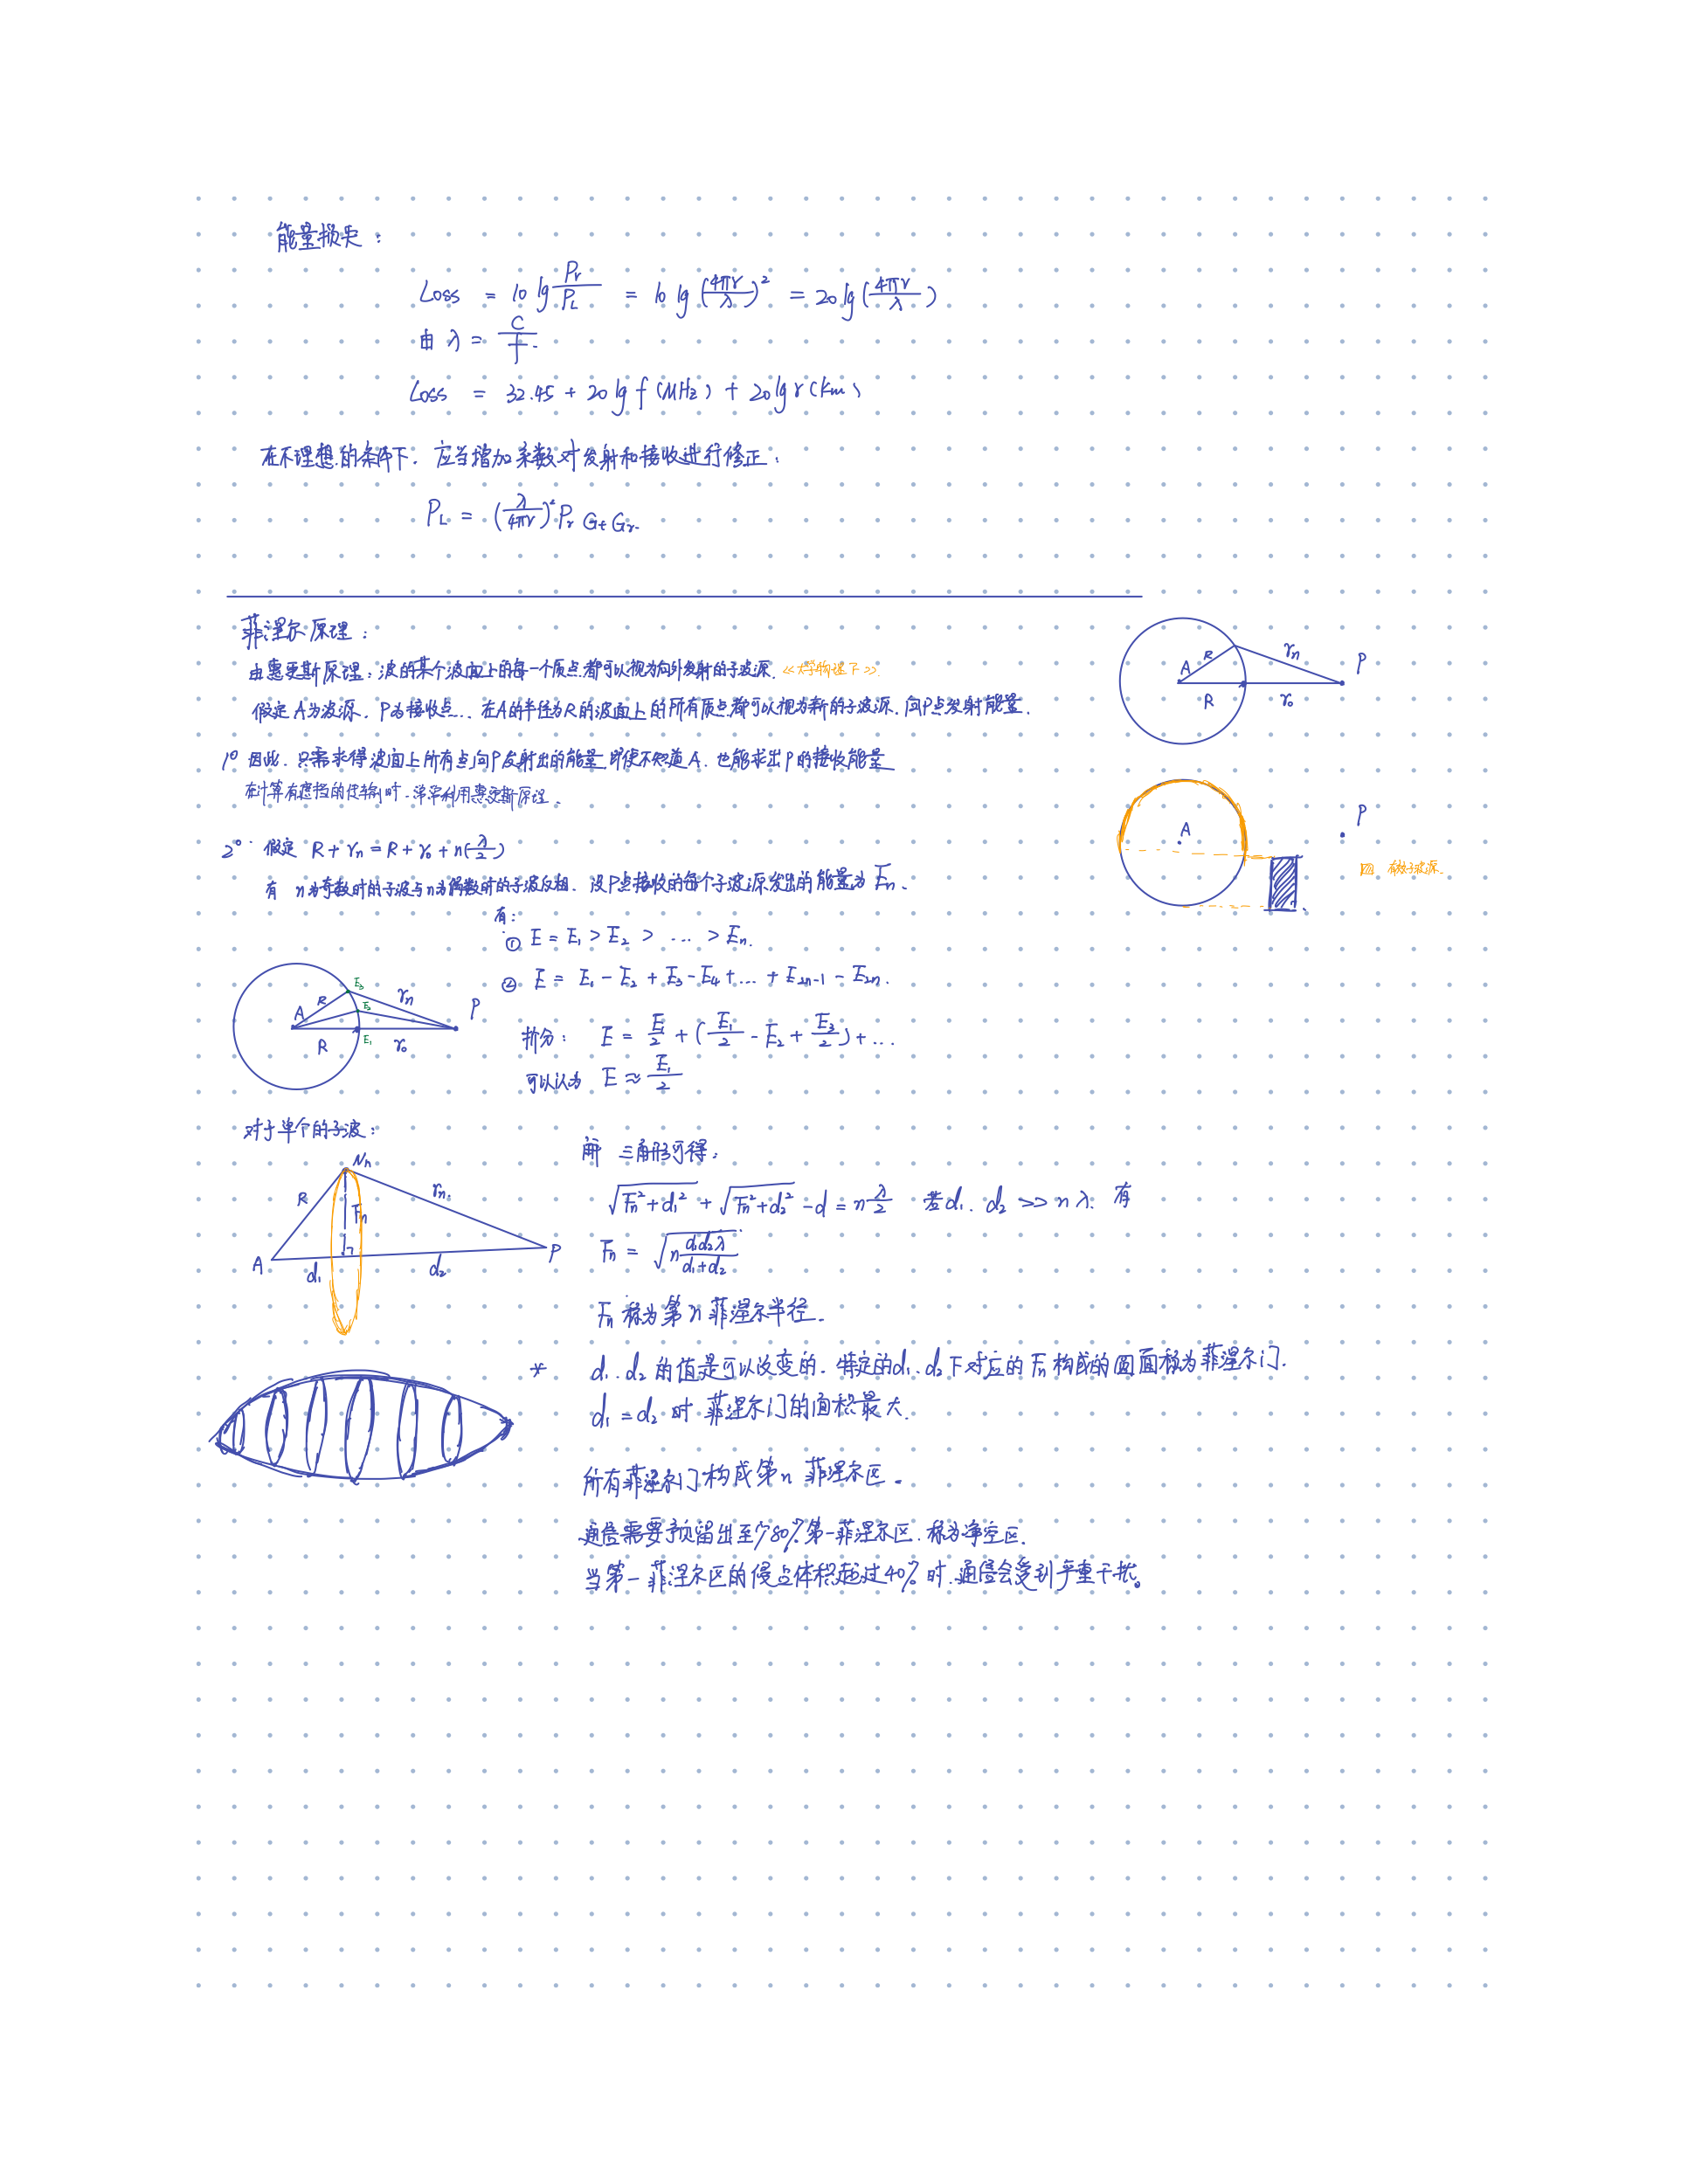 能量损失：
Loss = 10 lg Pr/PL = 10 lg (4πr/λ)² = 20 lg (4πr/λ)
由 λ = c/f.
Loss = 32.45 + 20 lg f (MHz) + 20 lg r (km)
在不理想的条件下，应当增加系数对发射和接收进行修正：
PL = (λ/4πr)² Pr Gt Gr.
菲涅尔原理：
由惠更斯原理：波的某个波面上的每一个质点都可以视为向外发射的子波源. 《大学物理下》
假定A为波源，P为接收点.. 在A的半径为R的波面上的所有质点都可以视为新的子波源，向P点发射能量.
A R rn P
R r0
1° 因此，只需求得波面上所有点向P发射出的能量，即使不知道A，也能求出P的接收能量
在计算有遮挡的传输时，常常利用惠更斯原理.
A P
有效子波源.
2° 假定 R + rn = R + r0 + n(λ/2)
有 n为奇数时的子波与n为偶数时的子波反相. 设P点接收的每个子波源发出的能量为 En.
有：
① E = E1 > E2 > ... > En.
② E = E1 - E2 + E3 - E4 + ... + E2n-1 - E2n.
A R E3 rn P
E2
R E1 r0
拆分： E = E1/2 + (E1/2 - E2 + E3/2) + ...
可以认为 E ≈ E1/2
对于单个的子波：
Nn
R rn.
Fn
A P
d1 d2
解 三角形可得：
√(Fn² + d1²) + √(Fn² + d2²) - d = n λ/2 若d1, d2 >> nλ. 有
Fn = √(n d1d2λ/(d1+d2))
Fn 称为第 n 菲涅尔半径.
* d1, d2 的值是可以改变的. 特定的d1, d2下对应的 Fn 构成的圆面称为菲涅尔门.
d1 = d2 时 菲涅尔门的面积最大.
所有菲涅尔门构成第 n 菲涅尔区.
通信需要预留出至少80%第一菲涅尔区，称为净空区.
当第一菲涅尔区的侵占体积超过40%时，通信会受到严重干扰。